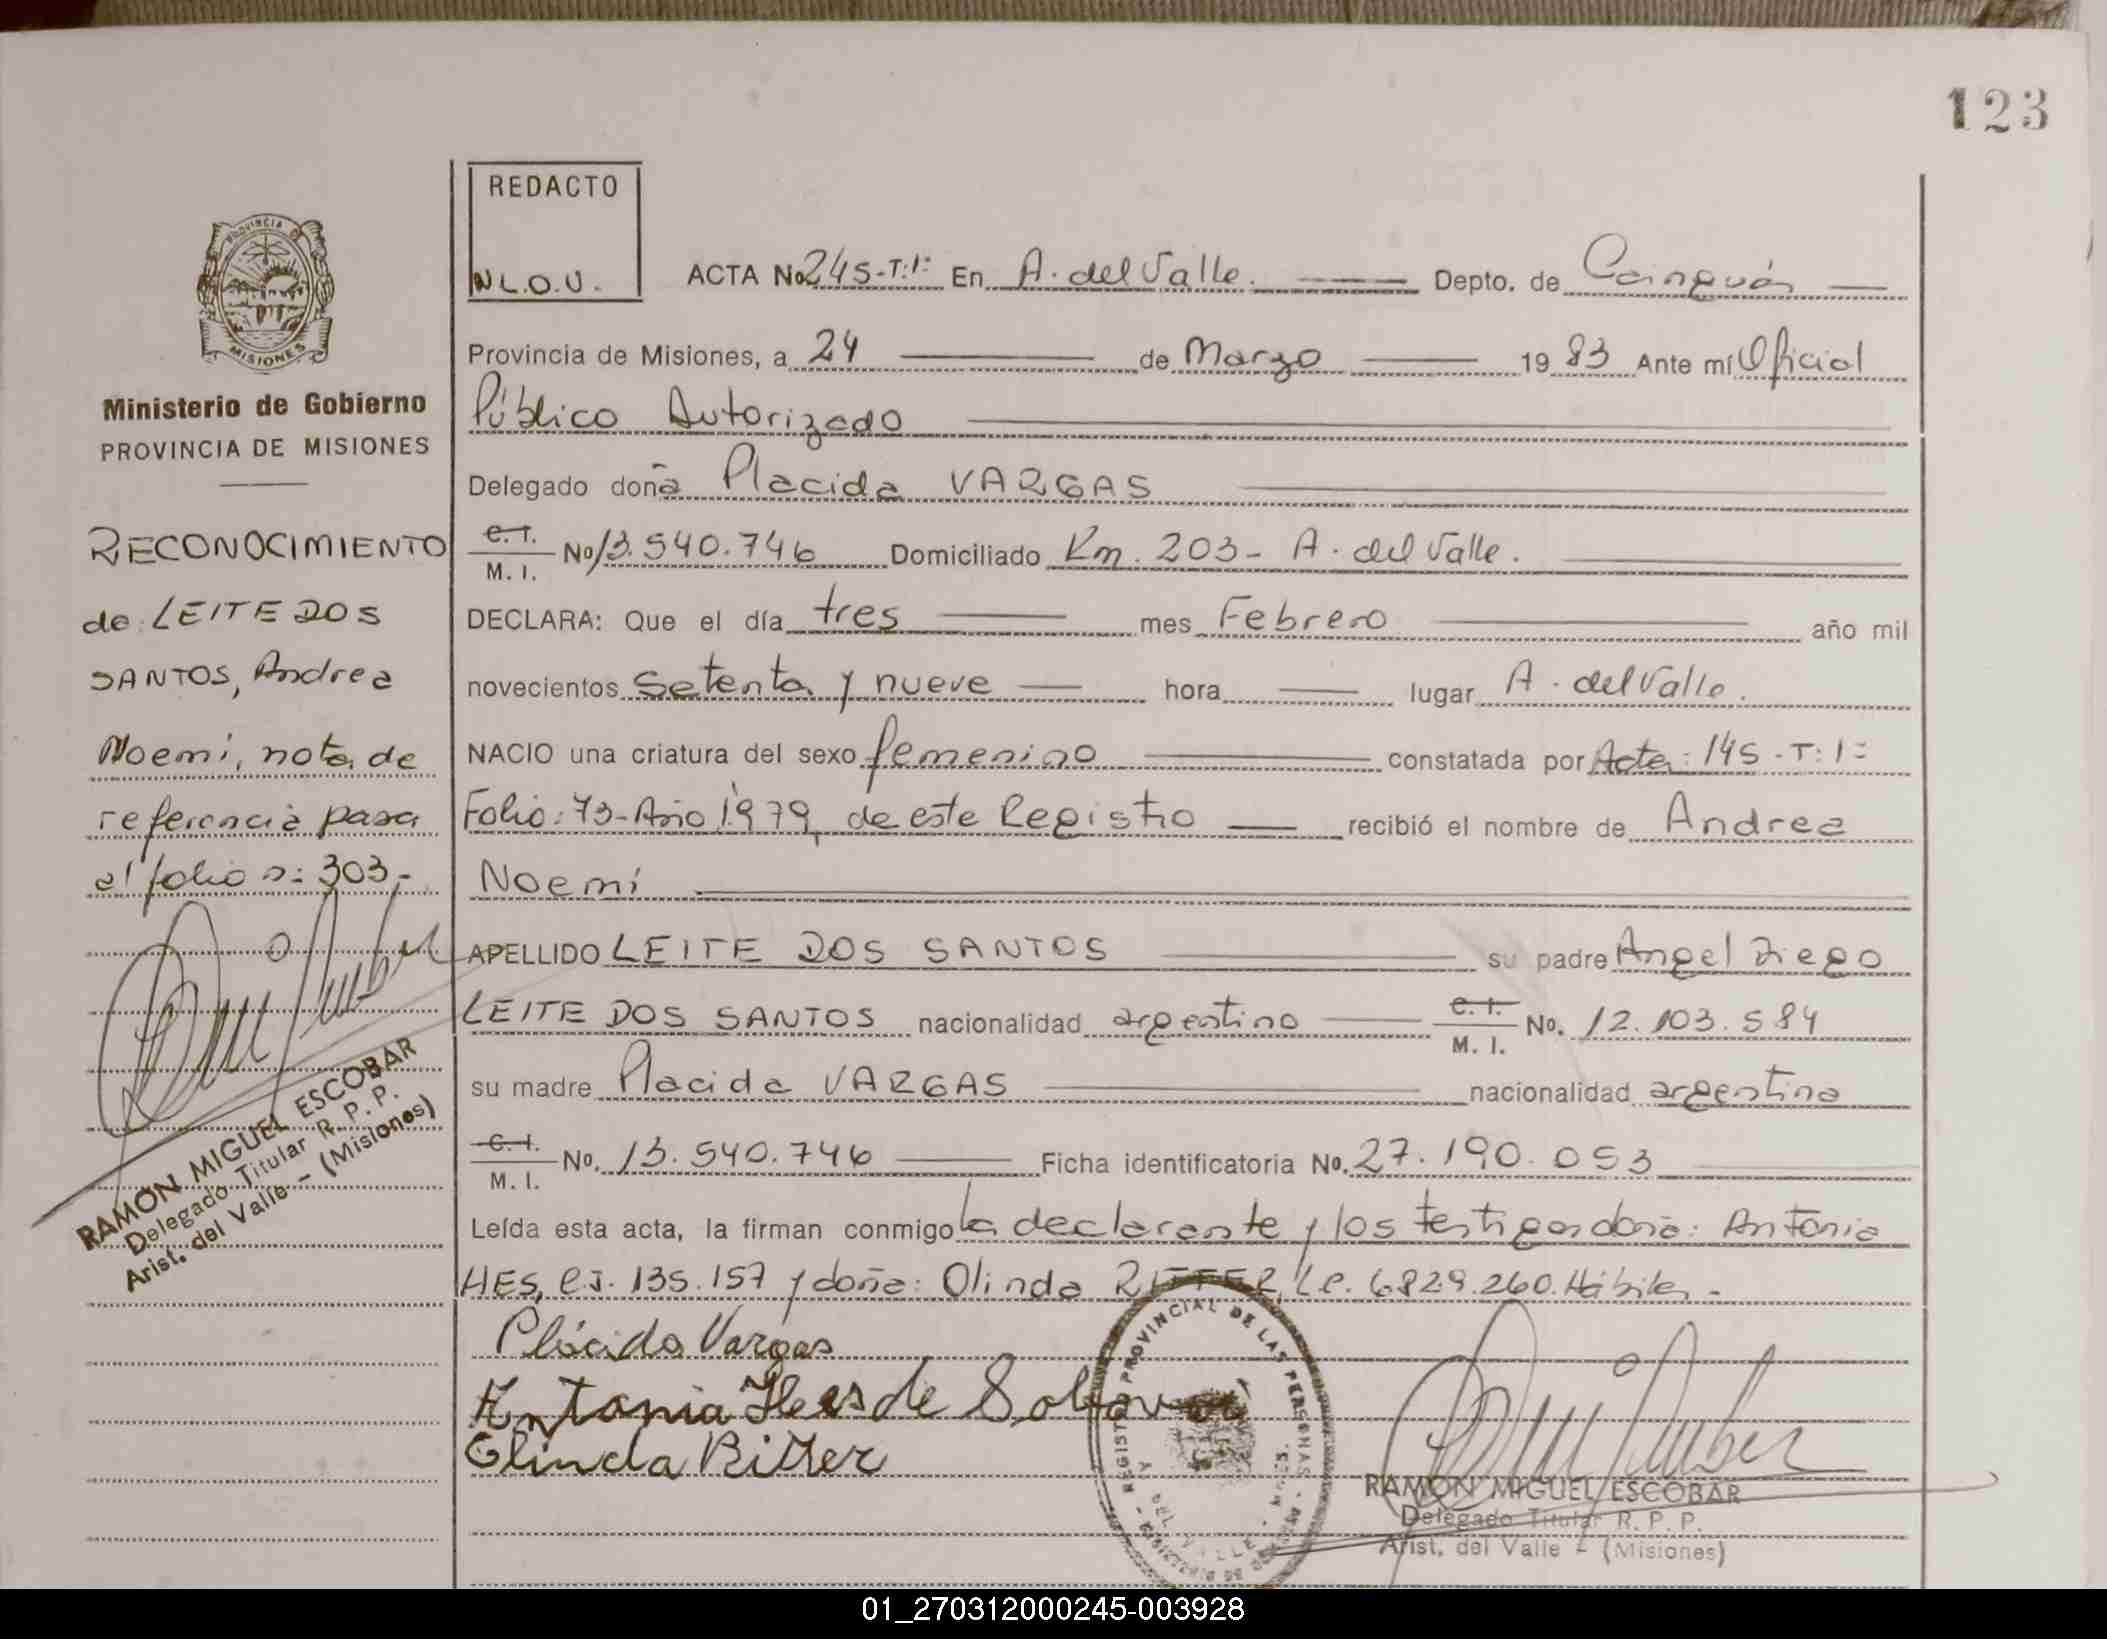 123
REDACTO
N.L.O.V.
ACTA No 245-T:1= En A. del Valle. Depto. de Cainguás
Provincia de Misiones, a 24 de Marzo 1983 Ante mí Oficial
Público Autorizado
Delegado doña Placida VARGAS
C.I. M.I. No 13.540.746 Domiciliado Km. 203- A. del Valle.
DECLARA: Que el día tres mes Febrero año mil
novecientos setenta y nueve hora lugar A. del Valle.
NACIO una criatura del sexo femenino constatada por Acta: 145-T:1=
Folio: 73-Año 1979, de este Registro recibió el nombre de Andrea
Noemí
APELLIDO LEITE DOS SANTOS su padre Angel Diego
LEITE DOS SANTOS nacionalidad argentino C.I. M.I. No. 12.103.584
su madre Placida VARGAS nacionalidad argentina
C.I. M.I. No. 13.540.746 Ficha identificatoria No. 27.190.053
Leída esta acta, la firman conmigo la declarante y los testigos doña: Antonia
HES, C.I. 135.157 y doña: Olinda RITTER, L.C. 6.829.260. Hábiles.-
Plácida Vargas
Antonia Hes de
Olinda Ritter
REGISTRO PROVINCIAL DE LAS PERSONAS
RAMON MIGUEL ESCOBAR
Delegado Titular R. P. P.
Arist. del Valle - (Misiones)
PROVINCIA DE
MISIONES
Ministerio de Gobierno
PROVINCIA DE MISIONES
RECONOCIMIENTO
de: LEITE DOS
SANTOS, Andrea
Noemí, nota de
referencia pasa
al folio n: 303.-
RAMON MIGUEL ESCOBAR
Delegado Titular R. P. P.
Arist. del Valle - (Misiones)
01_270312000245-003928